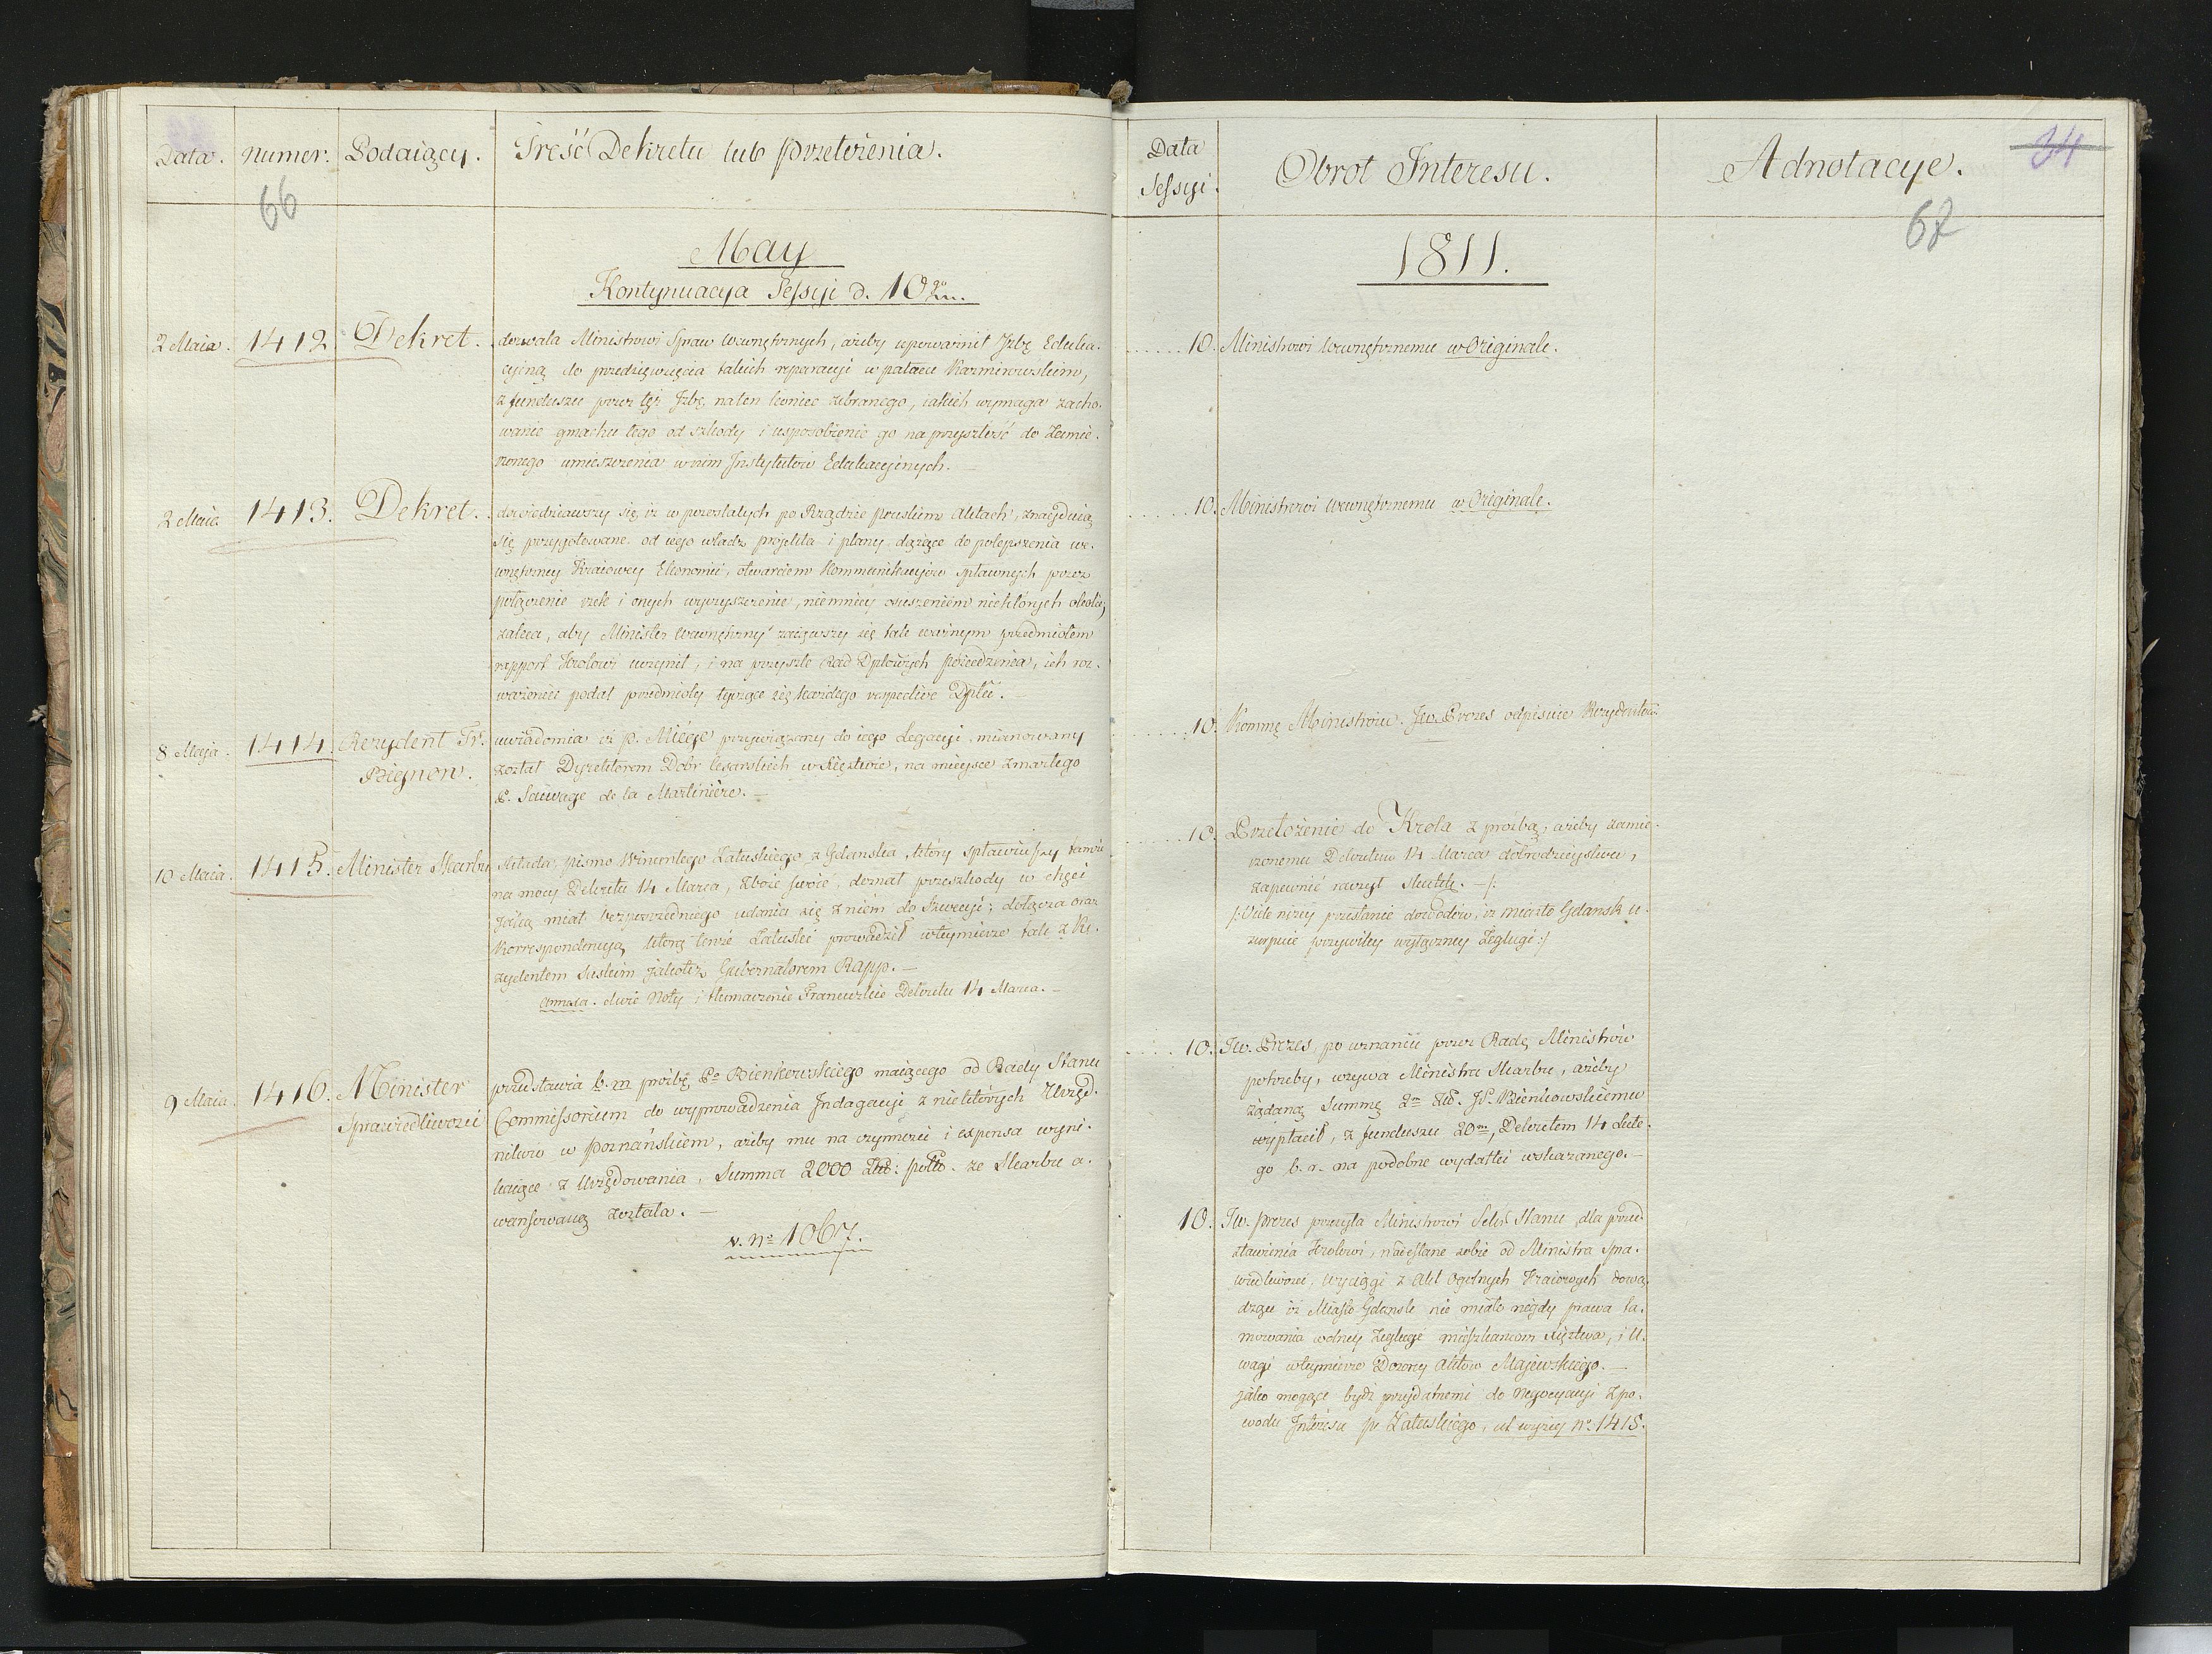 Data. Numer. Podaiący. Treść Dekretu lub Przełożenia.
66
May
Kontynuacya Sessyi d. 10go m.
2 Maia. 1412. Dekret. dozwala Ministrowi Spraw Wewnętrznych, ażeby upoważnił Jzbę Eduka-
cyiną do przedsięwzięcia takich reparacyi w pałacu Kazmirowskim,
z funduszu przez tęż Jzbę na ten koniec zebranego, iakich wymaga zacho-
wanie gmachu tego od szkody i usposobienie go na przyszłość do Zamie-
rzonego umieszczenia w nim Jnstytutow Edukacyinych.
2 Maia 1413. Dekret. dowiedziawszy się, iż w pozostałych po Rządzie pruskim Aktach, znayduią
się przygotowane od iego władz projekta i plany dążące do polepszenia we-
wnętrzney Kraiowey Ekonomii, otwarciem Kommunikacyiow spławnych przez
połączenie rzek i onych wyczyszczenie, niemniey osuszeniem niektorych okolic,
zaleca, aby Minister Wewnętrzny zaiąwszy się tak ważnym przedmiotem
rapport Krolowi uczynił, i na przyszłe Rad Dptowych posiedzenia, ich roz-
ważeniu podał przedmioty tyczące się każdego respective Dptu.
8 Maja. 1414. Rezydent Fr. uwiadomia iż p. Miége przywiązany do iego Legacyi, mianowany
Bignon. został Dyrektorem Dobr Cesarskich w Xięztwie, na mieysce zmarłego
P. Sauvage de la Martiniére.
10 Maia. 1415. Minister Skarbu składa pismo Wincentego Załuskiego z Gdanska, który spławiwszy tamże
na mocy Dekretu 14 Marca, Zboże swoie, doznał przeszkody w chęci
Jaką miał bezpośredniego udania się z niem do Szwecyi; dołącza oraz
Korrespondencyą którą tenże Załuski prowadził w tey mierze tak z Re-
zydentem Saskim jakoteż Gubernatorem Rapp.
annexa. dwie Noty i tłumaczenie Francuzkie Dekretu 14 Marca.
9 Maia. 1416. Minister przedstawia b. m prośbę Po Bienkowskiego maiącego od Rady Stanu
Sprawiedliwości Commissorium do wyprowadzenia Jndagacyi z niektórych Urzęd-
nikow w Poznańskiem, ażeby mu na czynności i expensa wyni-
kaiące z Urzędowania, Summa 2000 Złł: polł. ze Skarbu a-
wansowaną została.
v. No 1067.
Data
Sessyi. Obrot Jnteresu. Adnotacye. 34
67
1811.
10. Ministrowi Wewnętrznemu w Originale.
10. Ministrowi Wewnętrznemu w Originale.
10. Kommę Ministrów. Jw. Prezes odpisuie Rezydentowi
10. Przełożenie do Krola z prośbą, ażeby zamie-
rzonemu Dekretem 14 Marca dobrodzieystwu,
zapewnić raczył skutek. -/:
/:Vide niżey przesłanie dowodów, iż miasto Gdansk u-
zurpuie przywiley wyłączney Żeglugi:/
10. Jw. Prezes, po uznaniu przez Radę Ministrów
potrzeby, wzywa Ministra Skarbu, ażeby
żądaną Summę 2m Złł. JP. Bienkowskiemu
wypłacił, z funduszu 20m, Dekretem 14 Lute-
go b. r. na podobne wydatki wskazanego.
10. Jw. Prezes przesyła Ministrowi Sekr. Stanu, dla przed-
stawienia Krolowi, nadesłane sobie od Ministra Spra-
wiedliwości, wyciągi z Akt Ogolnych Kraiowych dowo-
dzące iż Miasto Gdansk nie miało nigdy prawa ta-
mowania wolney Żeglugi mieszkańcom Xięztwa, i U-
wagi w tey mierze Dozorcy Aktów Majewskiego.
jako mogące bydź przydatnemi do Negocyacyi z po-
wodu Jnteresu p. Załuskiego, ut wyżey No. 1415.